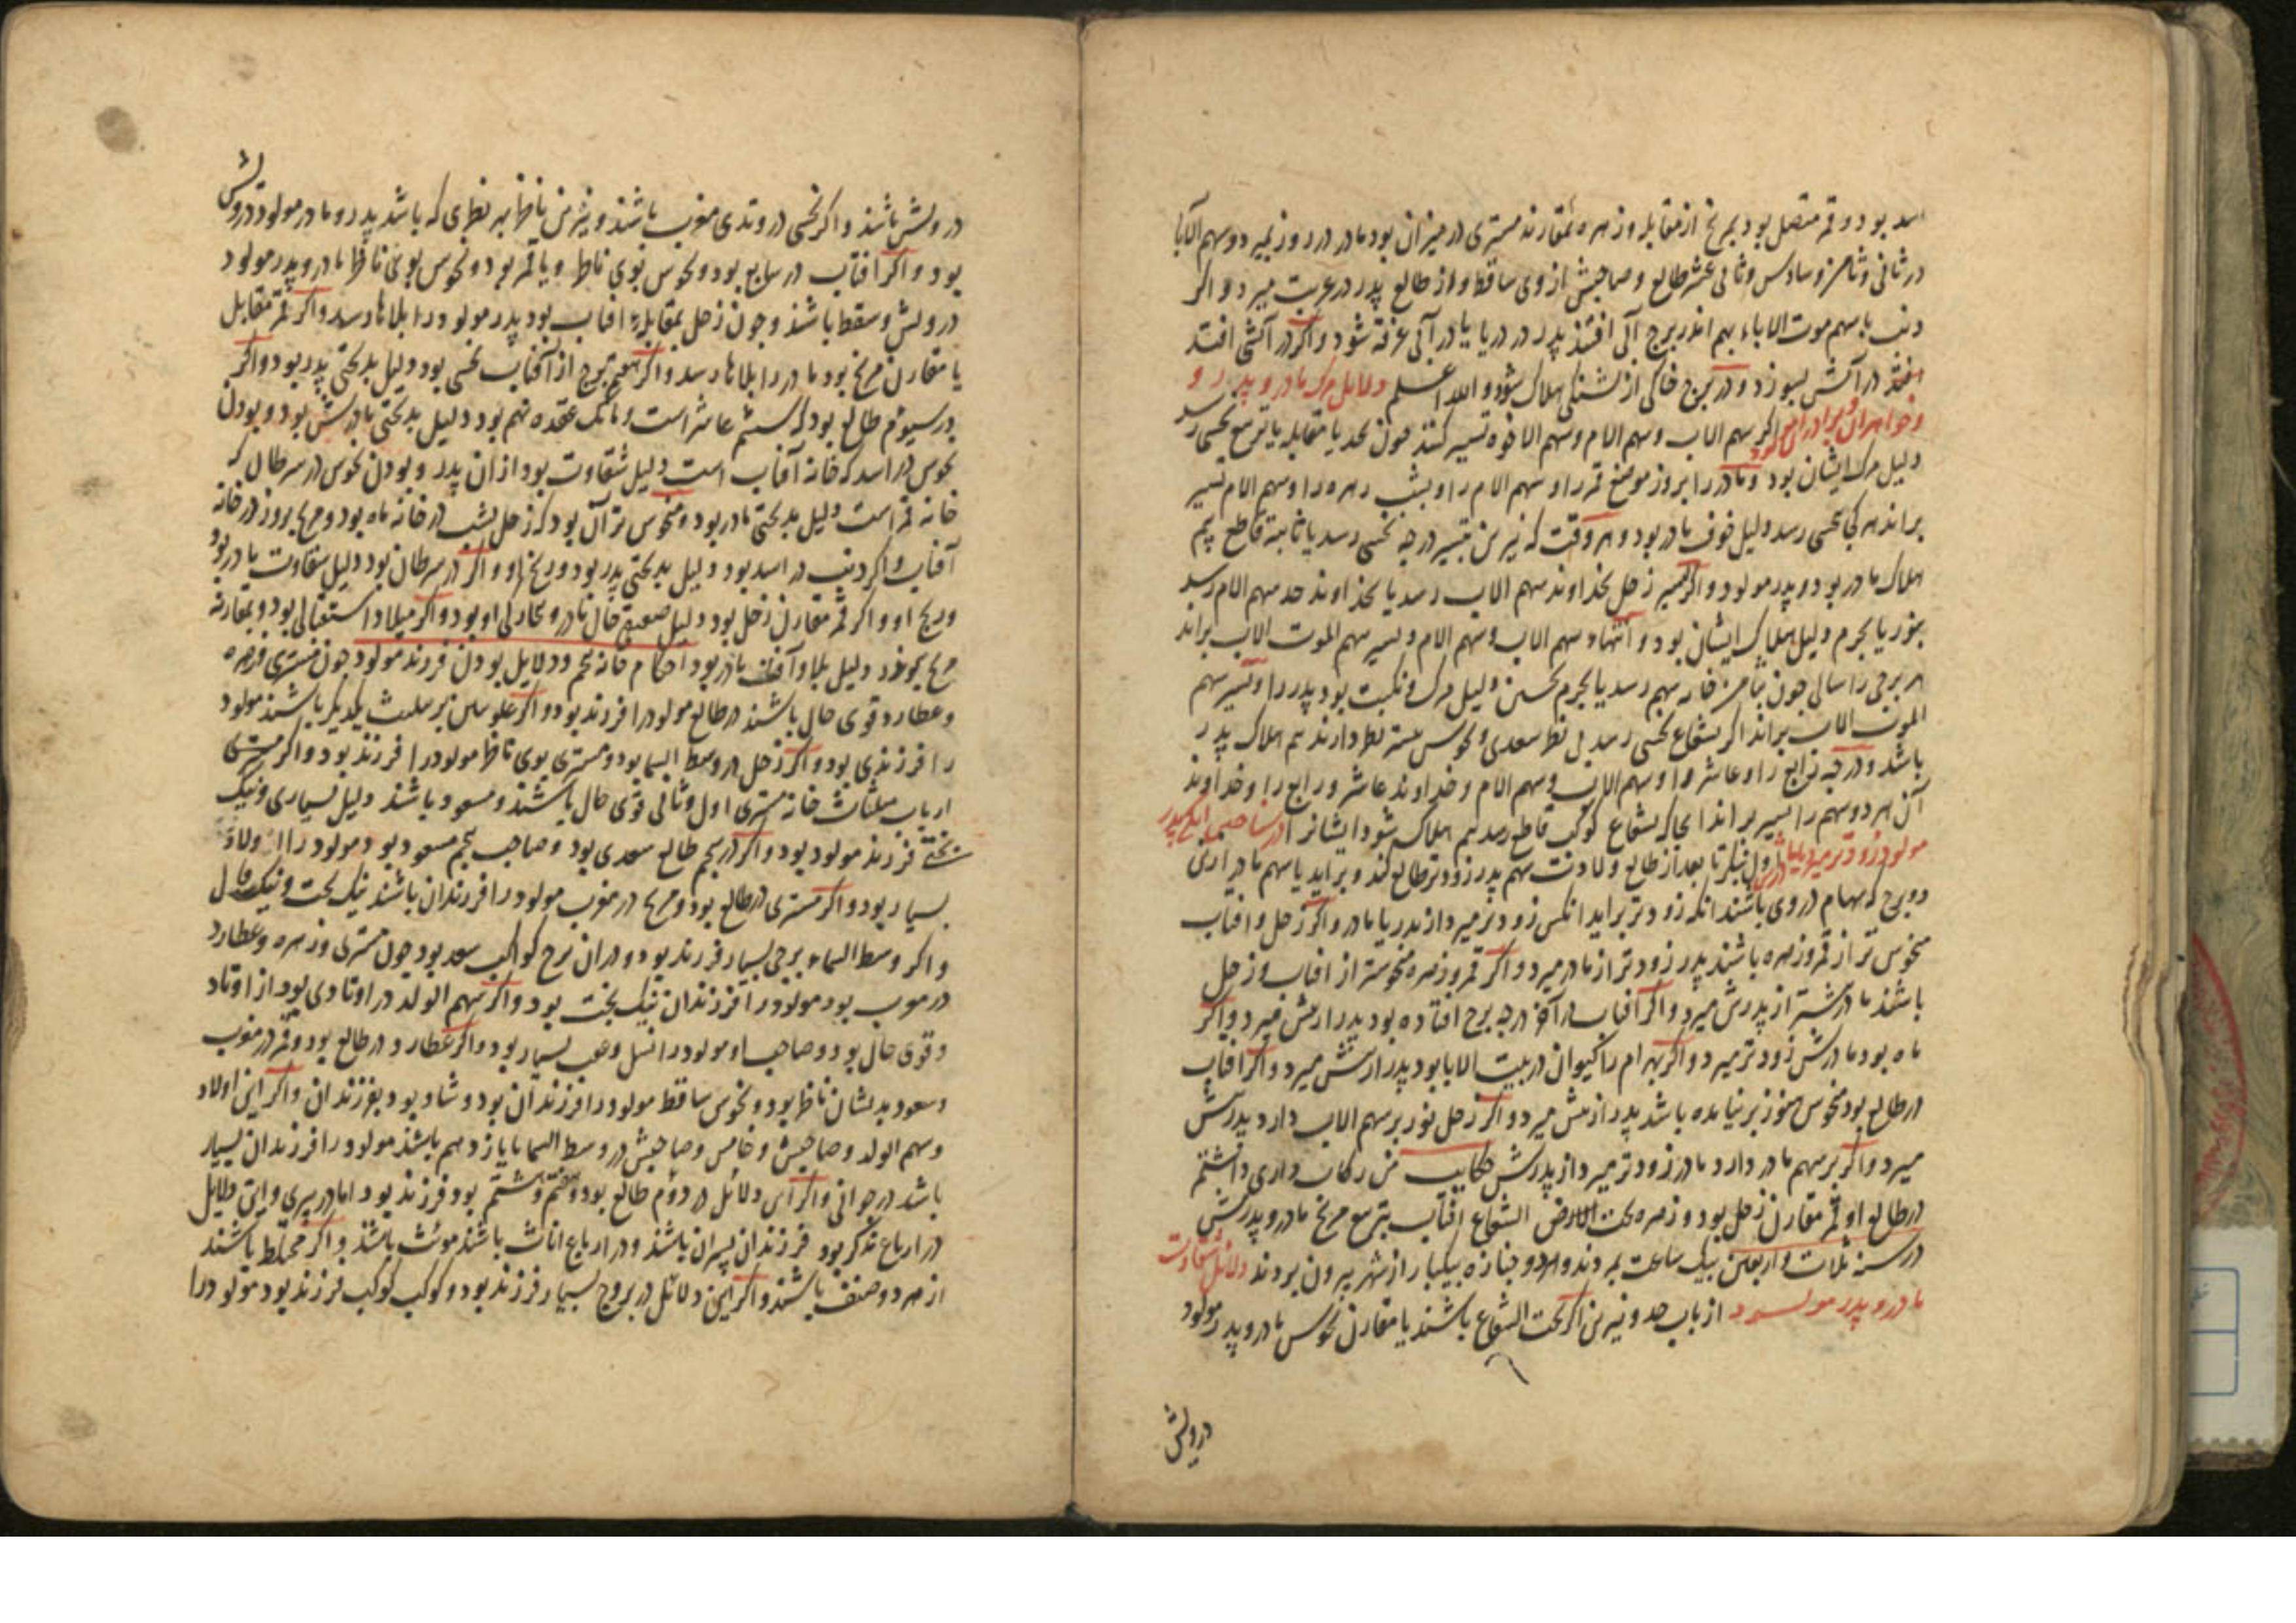 اسد بود و قمر متصل بود بمریخ از مقابله و زهره مقارنه مشتری در میزان بود مادر در روز بمیرد و سهم الآبا
در ثانی و ثامن و سادس و ثانی عشر طالع و صاحبش از وی ساقط و از طالع پدر در غربت میرد و اگر
ذنب با سهم موت الاباء بهم اندر برج آبی افتند پدر در دریا یا در آبی غرقه شود و اگر در آتشی افتد
افتد در آتش بسوزد و در برج خاکی از تشنگی هلاک شود و الله اعلم دلایل مرگ مادر و پدر و
و خواهران و برادران مولود اگر سهم الاب و سهم الام و سهم الاخوه تسییر کنند چون بحد یا مقابله یا تربیع نحسی رسد
دلیل مرگ ایشان بود و مادر را بروز موضع قمر را و سهم الام را و بشب زهره را و سهم الام تسییر
براند هر کجا بنحسی رسد دلیل خوف مادر بود و هر وقت که نیرین بتسییر درجه نحسی رسد یا ثابته قاطع بیم
هلاک مادر بود و پدر مولود و اگر تسییر زحل بخداوند سهم الاب رسد یا بخداوند حد سهم الام رسد
بنور یا بجرم دلیل هلاک ایشان بود و انتهاء سهم الاب و سهم الام و تسییر سهم الموت الاب براند
هر برجی را سالی چون بثامن خانه سهم رسد یا بجرم نحسین دلیل مرگ و نکبت بود پدر را و تسییر سهم
الموت الاب براند اگر بشعاع نحسی رسد بی نظر سعدی و نحوس بسته نظر دارند بیم هلاک پدر
باشد و درجه رابع را و عاشر را و سهم الاب و سهم الام و خداوند عاشر و رابع را و خداوند
آن هر دو سهم را تسییر براند آنجا که بشعاع کوکب قاطع رسد بیم هلاک شود ایشانرا
مولود زودتر میرد یا مادرش اول بنگر تا بعد از طالع ولادت سهم پدر زودتر طالع کند و برآید یا سهم مادر
دو برج که سهام در وی باشند آنکه زودتر برآید آنکس زودتر میرد از پدر یا مادر و اگر زحل و آفتاب
منحوس تر از قمر و زهره باشند پدر زودتر از مادر میرد و اگر قمر و زهره منحوستر از آفتاب و زحل
باشند مادرش پیشتر از پدرش میرد و اگر آفتاب در آخر درجه برج افتاده بود پدر از پیش میرد و اگر
ماه بود مادرش زودتر میرد و اگر بهرام را کیوان در بیت الابا بود پدر از پیش میرد و اگر آفتاب
در طالع بود منحوس هنوز برنیامده باشد پدر از پیش میرد و اگر زحل نور بر سهم الاب دارد پدرش
میرد و اگر بر سهم مادر دارد مادر زودتر میرد از پدرش حکایت من رکاب داری داشتم
در طالع او قمر مقارن زحل بود و زهره تحت الارض الشعاع آفتاب بتربیع مریخ مادر و پدرش
در سنه ثلاث و اربعین بیک ساعت بمردند و هر دو جنازه بیکبار از شهر بیرون بردند دلائل شقاوت
مادر و پدر مولود از باب حد و نیرین اگر تحت الشعاع باشند یا مقارن نحوس مادر و پدر مولود
درویش
درویش باشند و اگر نحسی در وتدی مغرب باشند و نیرین ناظر بهر نظری که باشد پدر و مادر مولود درویش
بود و اگر آفتاب در سابع بود و نحوس بوی ناظر و یا قمر بود و نحوس بوی ناظر مادر و پدر مولود
درویش و سقط باشند و چون زحل بمقابله آفتاب بود پدر مولود را بلاها رسد و اگر قمر مقابل
یا مقارن مریخ بود مادر را بلاها رسد و اگر هفتم برج از آفتاب نحسی بود دلیل بدبختی پدر بود و اگر
در سیوم طالع بود که ششم عاشر است و مالک عقده نهم بود دلیل بدبختی مادرش بود و بودن
نحوس در اسد که خانه آفتاب است دلیل شقاوت بود از آن پدر و بودن نحوس در سرطان که
خانه قمر است دلیل بدبختی مادر بود و منحوس تر آن بود که زحل بشب در خانه ماه بود و مریخ بروز در خانه
آفتاب و اگر ذنب در اسد بود دلیل بدبختی پدر بود و رنج او و اگر در سرطان بود دلیل شقاوت مادر بود
و رنج او و اگر قمر مقارن زحل بود دلیل ضعیفی حال مادر و بیچارگی او بود و اگر میلاد استقبالی بود و بمقارنه
مریخ بود دلیل بلا و آفت مادر بود احکام خانه پنجم و دلایل بودن فرزند مولود چون مشتری و زهره
و عطارد قوی حال باشند در طالع مولود را فرزند بود و اگر علویین بر تثلیث یکدیگر باشند مولود
را فرزندی بود و اگر زحل در وسط السما بود و مشتری بوی ناظر مولود را فرزند بود و اگر مشتری
ارباب مثلثات خانه مشتری اول و ثانی قوی حال باشند و مسعود باشند دلیل بسیاری و نیک
بختی فرزند مولود بود و اگر در پنجم طالع سعدی بود و صاحب پنجم مسعود بود مولود را اولاد
بسیار بود و اگر مشتری در طالع بود و مریخ در مغرب مولود را فرزندان باشند نیک بخت و نیک حال
و اگر وسط السماء برجی بسیار فرزند بود و در آن برج کواکب سعد بود چون مشتری و زهره و عطارد
در مغرب بود مولود را فرزندان نیک بخت بود و اگر سهم الولد در اوتادی بود از اوتاد
و قوی حال بود و صاحب او مولود را نسل و عقب بسیار بود و اگر عطارد در طالع بود و قمر در مغرب
و سعود بدیشان ناظر بود و نحوس ساقط مولود را فرزندان بود و شاد بود بفرزندان و اگر این اولاد
و سهم الولد و صاحبش و خامس و صاحبش در وسط السما یا یازدهم باشند مولود را فرزندان بسیار
باشد در جوانی و اگر این دلائل در دوم طالع بود و هفتم و هشتم بود فرزند بود اما در پیری و این دلایل
در ارباع مذکر بود فرزندان پسران باشند و در ارباع اناث باشند مونث باشند و اگر مختلط باشند
از هر دو صنف باشند و اگر این دلائل در بروج بسیار فرزند بود و کوکب کوکب فرزند بود مولود را